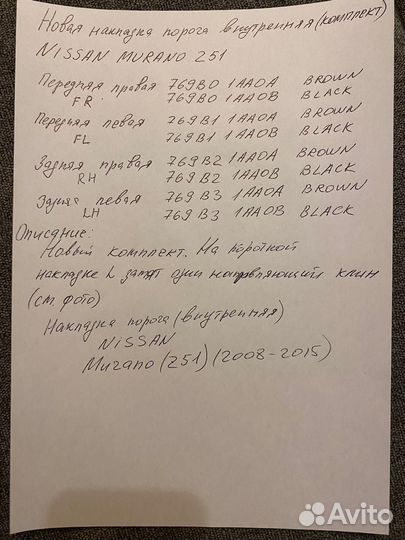 Новая накладка порога внутренняя (комплект)
NISSAN MURANO Z51
Передняя правая 769B0 1AA0A BROWN
FR 769B0 1AA0B BLACK
Передняя левая 769B1 1AA0A BROWN
FL 769B1 1AA0B BLACK
Задняя правая 769B2 1AA0A BROWN
RH 769B2 1AA0B BLACK
Задняя левая 769B3 1AA0A BROWN
LH 769B3 1AA0B BLACK
Описание:
Новый комплект. На короткой
накладке L замят один направляющий клин
(см. фото)
Накладка порога (внутренняя)
NISSAN
Murano (Z51) (2008-2015)
Avito